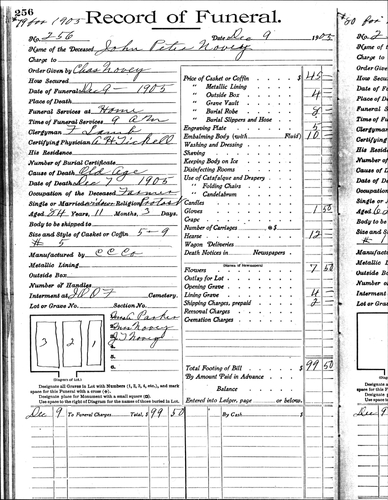 256
79 for 1905
Record of Funeral.
No. 256 Date Dec 9 1905
Name of the Deceased John Peter Novey
Charge to
Order Given by Chas Novey
How Secured
Date of Funeral Dec 9 - 1905
Place of Death
Funeral Services at Home
Time of Funeral Services 9 A M
Clergyman F Lamb
Certifying Physician A H Tickell
His Residence
Number of Burial Certificate
Cause of Death Old Age
Date of Death Dec 7 1905
Occupation of the Deceased Farmer
Single or Married widower Religion Protest
Aged 84 Years, 11 Months, 3 Days
Body to be shipped to
Size and Style of Casket or Coffin 5-9
# 5
Manufactured by C C Co
Metallic Lining
Outside Box
Number of Handles
Interment at I O O F Cemetery.
Lot or Grave No. Section No.
3 2 1
Parker
Novey
J Novey
(Diagram of Lot.)
Designate all Graves in Lot with Numbers (1, 2, 3, 4, etc.), and mark
space for this Funeral with a cross
Designate place for Monument with a small square
Use space to the right of Diagram for names of those buried in Lot.
Price of Casket or Coffin $ 45
" Metallic Lining
" Outside Box 4
" Grave Vault
" Burial Robe 8
" Burial Slippers and Hose
Engraving Plate
Embalming Body (with Fluid) 10
Washing and Dressing
Shaving
Keeping Body on Ice
Disinfecting Rooms
Use of Catafalque and Drapery
" Folding Chairs
" Candelabrum
Candles
Gloves 1 50
Crape
Number of Carriages @ $
Hearse 12
Wagon Deliveries
Death Notices in Newspapers
Flowers 7 50
Outlay for Lot
Opening Grave
Lining Grave 4
Shipping Charges, prepaid 2
Removal Charges
Cremation Charges
Total Footing of Bill $ 99 50
By Amount Paid in Advance
Balance
Entered into Ledger, page or below.
Dec 9 To Funeral Charges Total, $ 99 50 By Cash $